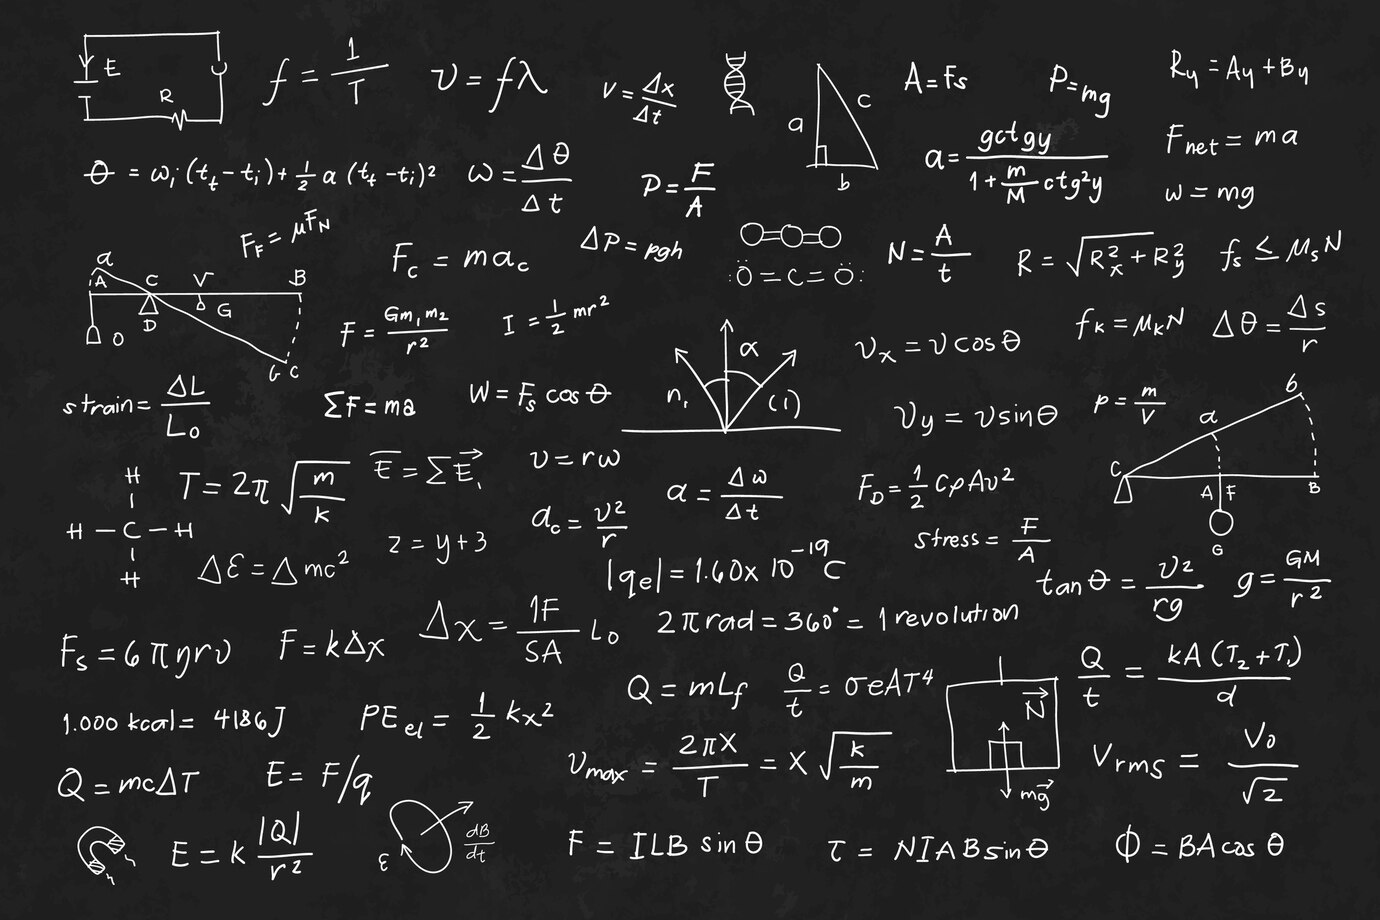 E
R
f = 1/T
v = fλ
v = Δx/Δt
a
c
b
A = Fs
P = mg
Ry = Ay + By
θ = ωi (tf - ti) + 1/2 α (tf - ti)²
ω = Δθ/Δt
P = F/A
a = gctgy / 1 + m/M ctg²y
Fnet = ma
w = mg
FF = μFN
Fc = mac
ΔP = ρgh
Ö = C = Ö
N = A/t
R = √Rx² + Ry²
fs ≤ μsN
a
A C V B
D
G
O
G C
F = Gm1m2/r²
I = 1/2 mr²
α
n1
(1)
vx = v cos θ
fk = μkN
Δθ = Δs/r
strain = ΔL/Lo
ΣF = ma
W = Fs cos θ
vy = v sin θ
ρ = m/V
b
a
C
A F B
G
H
H - C - H
H
T = 2π √m/k
E = ΣE1
v = rω
α = Δω/Δt
FD = 1/2 CρAv²
ac = v²/r
z = y + 3
stress = F/A
ΔE = Δmc²
|qel| = 1.60 x 10⁻¹⁹ C
tan θ = v²/rg
g = GM/r²
Fs = 6πηrv
F = kΔx
Δx = 1F/SA Lo
2π rad = 360° = 1 revolution
Q = mLf
Q/t = σeAT⁴
N
mg
Q/t = kA (T2 + T1)/d
1.000 kcal = 4186J
PEel = 1/2 kx²
vmax = 2πX/T = X √k/m
Vrms = Vo/√2
Q = mcΔT
E = F/q
E = k |Q|/r²
ε
dB/dt
F = ILB sin θ
τ = NIAB sin θ
Φ = BA cos θ